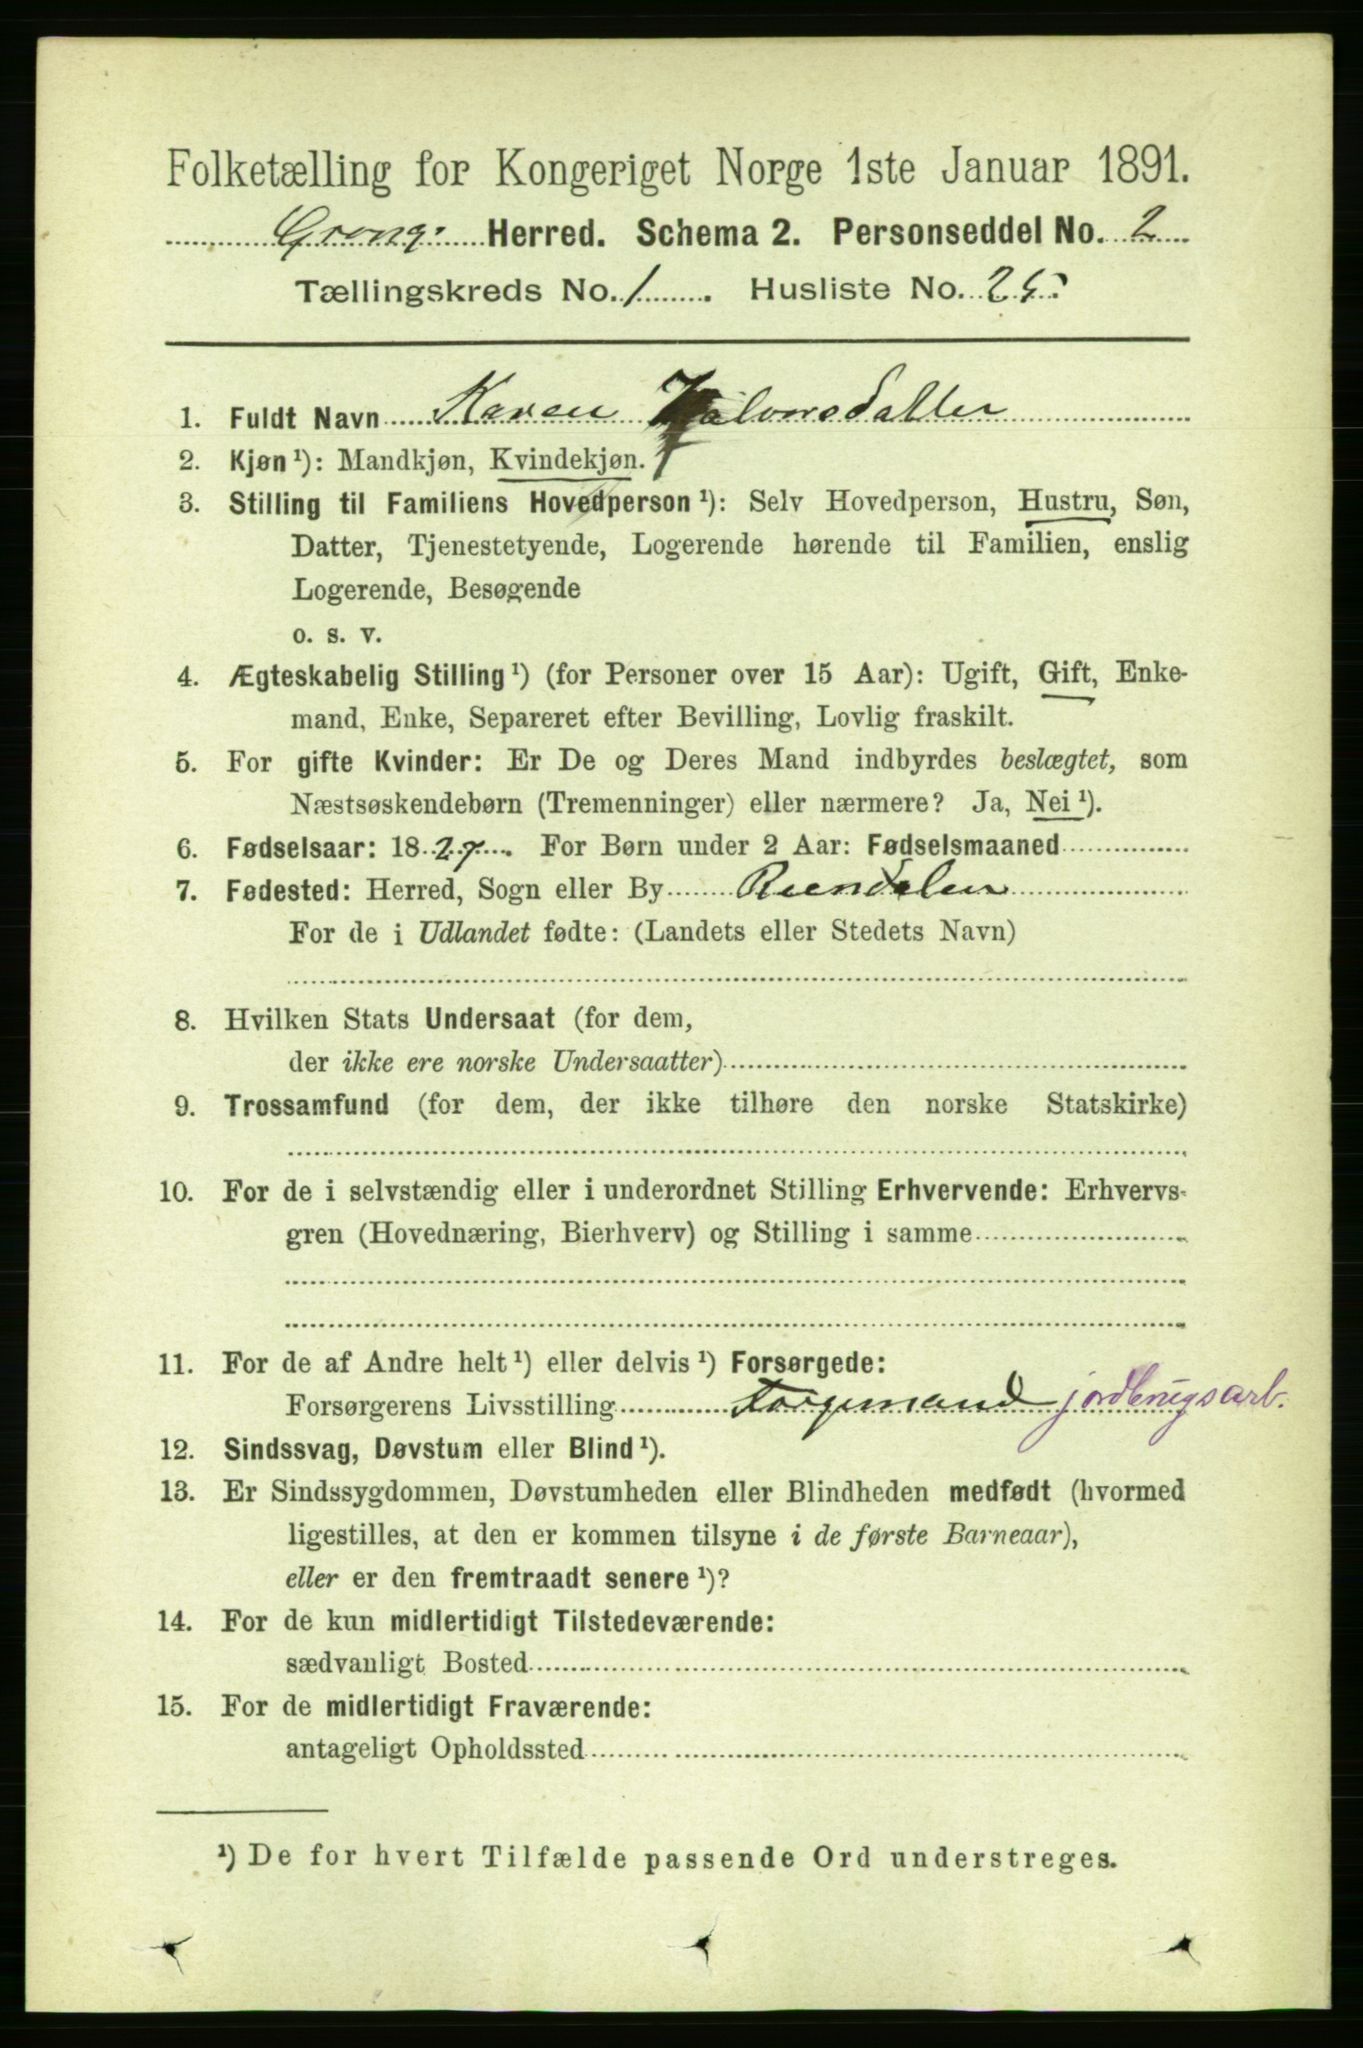 Folketælling for Kongeriget Norge 1ste Januar 1891.
Grong. Herred. Schema 2. Personseddel No. 2
Tællingskreds No. 1. Husliste No. 25.
1. Fuldt Navn Karen Halvorsdatter
2. Kjøn ¹): Mandkjøn, Kvindekjøn.
3. Stilling til Familiens Hovedperson ¹): Selv Hovedperson, Hustru, Søn,
Datter, Tjenestetyende, Logerende hørende til Familien, enslig
Logerende, Besøgende
o. s. v.
4. Ægteskabelig Stilling ¹) (for Personer over 15 Aar): Ugift, Gift, Enke-
mand, Enke, Separeret efter Bevilling, Lovlig fraskilt.
5. For gifte Kvinder: Er De og Deres Mand indbyrdes beslægtet, som
Næstsøskendebørn (Tremenninger) eller nærmere? Ja, Nei ¹).
6. Fødselsaar: 1827. For Børn under 2 Aar: Fødselsmaaned
7. Fødested: Herred, Sogn eller By
For de i Udlandet fødte: (Landets eller Stedets Navn)
8. Hvilken Stats Undersaat (for dem,
der ikke ere norske Undersaatter)
9. Trossamfund (for dem, der ikke tilhøre den norske Statskirke)
10. For de i selvstændig eller i underordnet Stilling Erhvervende: Erhvervs-
gren (Hovednæring, Bierhverv) og Stilling i samme
11. For de af Andre helt ¹) eller delvis ¹) Forsørgede:
Forsørgerens Livsstilling jordbrugsarb.
12. Sindssvag, Døvstum eller Blind ¹).
13. Er Sindssygdommen, Døvstumheden eller Blindheden medfødt (hvormed
ligestilles, at den er kommen tilsyne i de første Barneaar),
eller er den fremtraadt senere ¹)?
14. For de kun midlertidigt Tilstedeværende:
sædvanligt Bosted
15. For de midlertidigt Fraværende:
antageligt Opholdssted
¹) De for hvert Tilfælde passende Ord understreges.